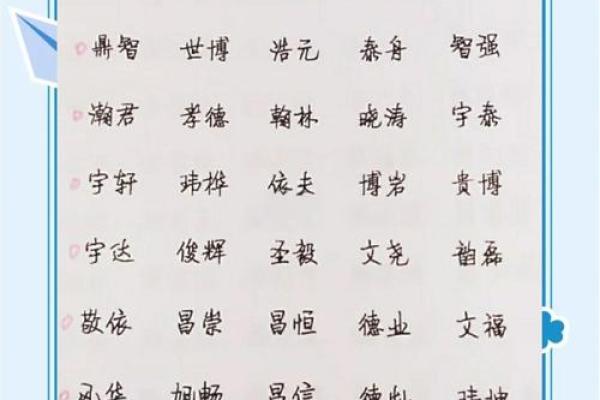 鼎智 世博 浩元 泰舟 智强
瀚君 孝德 翰林 晓涛 宇泰
宇轩 玮桦 依夫 博岩 贵博
宇达 俊辉 圣毅 文尧 韵磊
敬依 昌崇 昌恒 德业 文福
旭畅 昌信